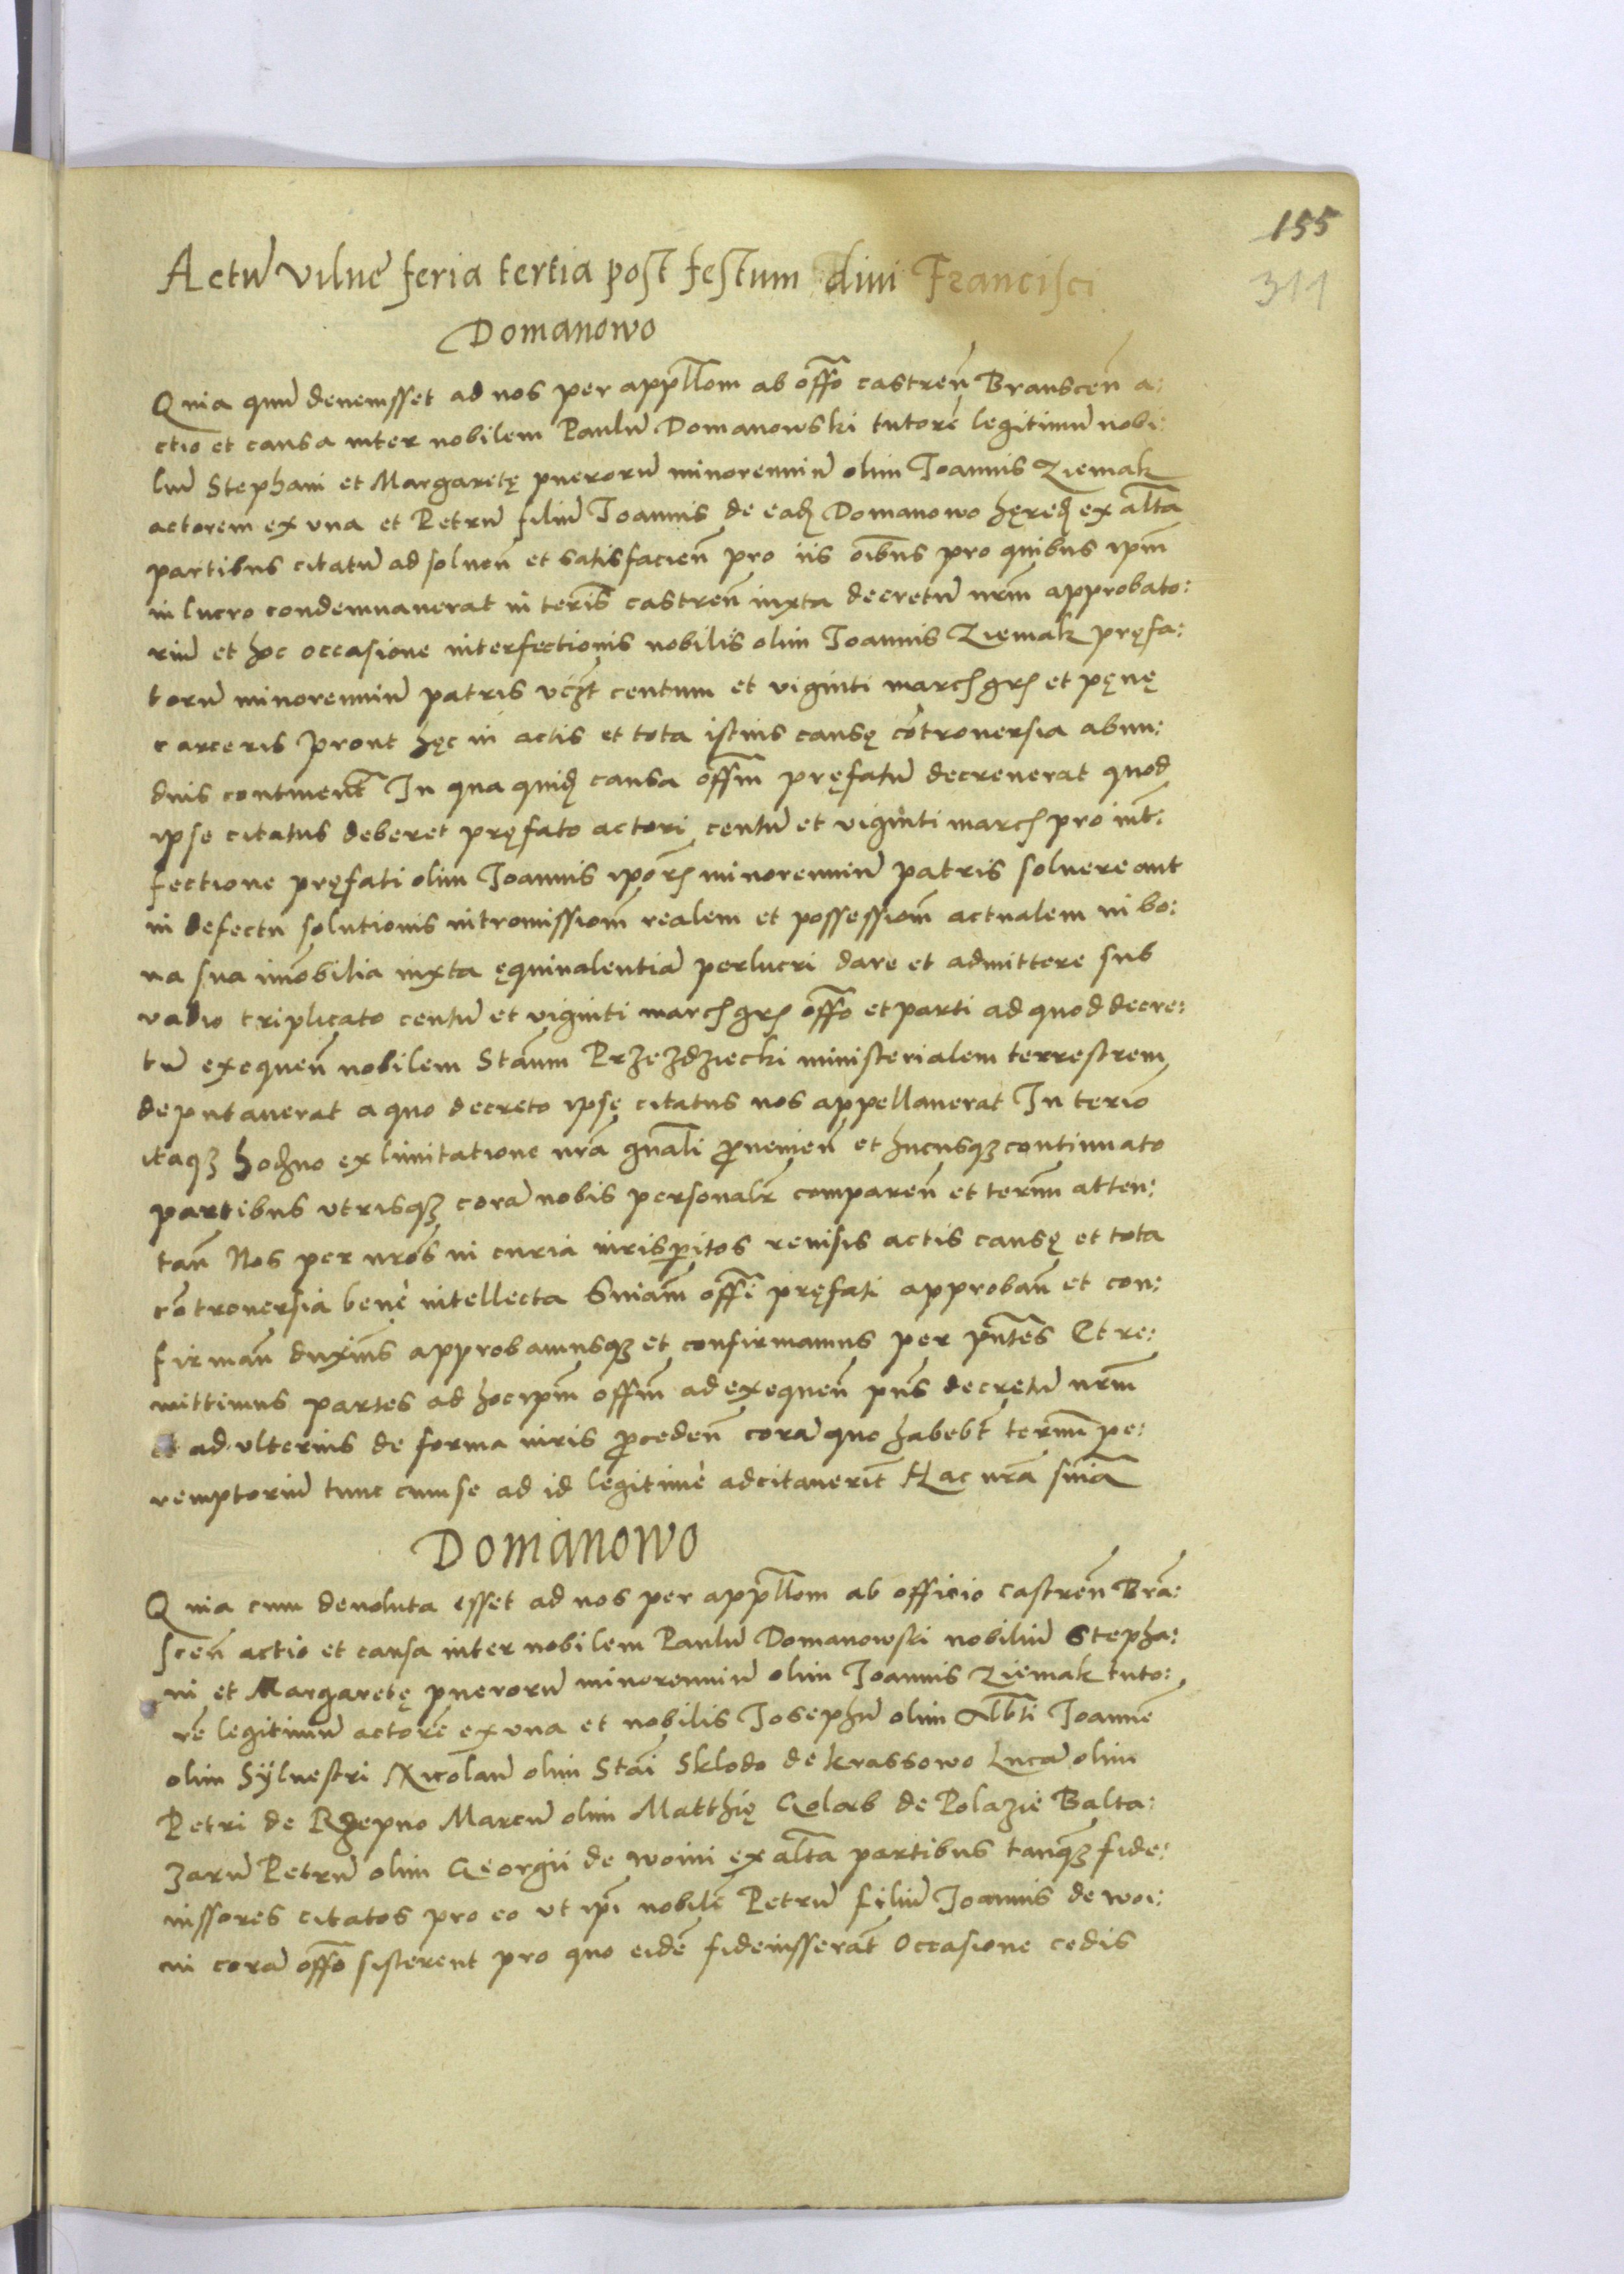 155
311
Actū vilnę feria tertia post festum diui Francisci
Domanowo
Quia quū deuenisset ad nos per appłłom ab offō castreń Branscēn a:
ctio et causa inter nobilem Paulū Domanowski tutorē legitimū nobi:
liū Stephani et Margaretę puerorū minorenniū olim Joannis Ziemak
actorem ex vna et Petrū filiū Joannis de eadȝ Domanowo hęredȝ ex alta
partibus citatū ad soluēn et satisfaciēn pro iis oībus pro quibus ipm
in lucro condemnauerat in terīs castreń iuxta decretū nrm approbato:
riū et hoc occasione interfectionis nobilis olim Joannis Ziemak pręfa:
torū minorenniū patris vcȝt centum et viginti march grs et pęnę
carceris prout hęc in actis et tota istius causę cōtrouersia abun:
dius continent In qua quidȝ causa offm pręfatū decreuerat quod
ipse citatus deberet pręfato actori centū et viginti march pro int:
fectione pręfati olim Joannis ipors minorenniū patris soluere aut
in defectu solutionis intromissiom realem et possessiom actualem in bo:
na sua imobilia iuxta ęquiualentiā perlucri dare et admittere sub
vadio triplicato centū et viginti march grs offo et parti ad quod decre:
tū exequēn nobilem Staum Przezdziecki ministerialem terrestrem
deputauerat a quo decreto ipsę citatus nos appellauerat In terīo
itaqȝ hodȝno ex limitatione nrā gnāli proueniēn et hucusqȝ continuato
partibus vtrisqȝ corā nobis personalr comparēn et termī atten:
tań Nos per nros in curia iurisperitos reuisis actis causę et tota
cōtrouersia benè intellecta Sniam offi pręfati approbań et con:
firmań duximus approbamusqȝ et confirmamus per pntes Et re:
mittimus partes ad hoc ipm offm ad exequēn pns decretū nrm
et ad vlterius de forma iuris procedēn corā quo habebt termī pe:
remptoriū tunc cum se ad id legitimè adcitauerīt Hac nrā snia
Domanowo
Quia cum deuoluta esset ad nos per appłłom ab officio castreń Brā:
scēn actio et causa inter nobilem Paulū Domanowski nobiliū Stepha:
ni et Margaretę puerorū minorenniū olim Joannis Ziemak tuto:
rē legitimū actorē ex vna et nobilis Josephū olim Albti Joannē
olim Sÿluestri Nicolaū olim Stai Sklodo de Krassowo Lucā olim
Petri de Rzepno Marcū olim Matthię Golab de Polazie Balta:
zarū Petrū olim Georgii de Woini ex alta partibus tanqȝ fide:
iussores citatos pro eo vt ipi nobile Petrū filiū Joannis de Woi:
ni corā offo sisterent pro quo eidē fideiusserāt Occasione cedis